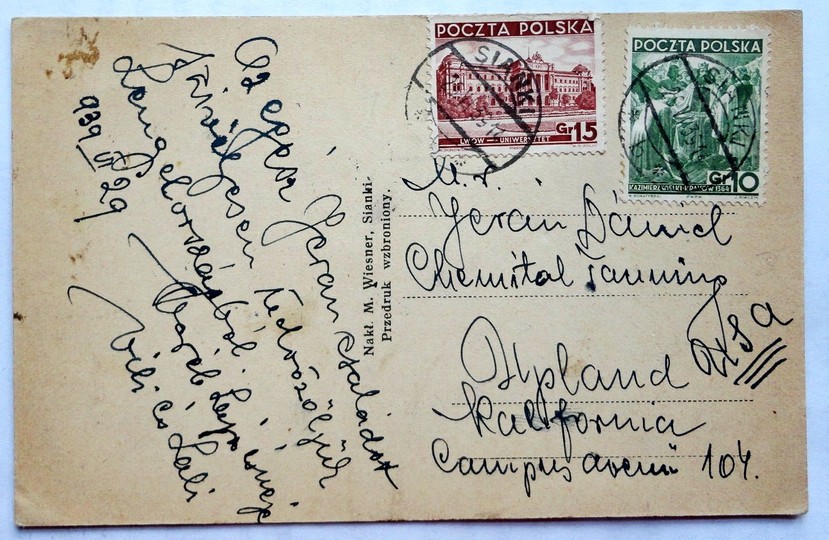 Az egész Jerán családot
szivélyesen üdvözöljük
Lengyelországból
939 VI 29
Vili és Lali
Nakł. M. Wiesner, Sianki.
Przedruk wzbroniony.
POCZTA POLSKA
SIANKI
Gr 15
LWÓW — UNIWERSYTET
POCZTA POLSKA
SIANKI
Gr 10
KAZIMIERZ WIELKI - KRAKÓW 1364
Mr.
Jeran Dániel
Chemital Tanning
Upland
USA
Kalifornia
Campus avenü 104.